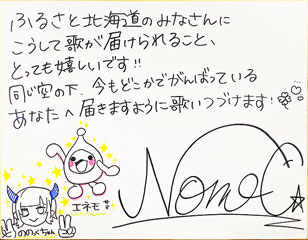 ふるさと北海道のみなさんに
こうして歌が届けられること、
とっても嬉しいです!!
同じ空の下、今もどこかでがんばっている
あなたへ届きますように歌いつづけます!
エネモ
ののくちゃん